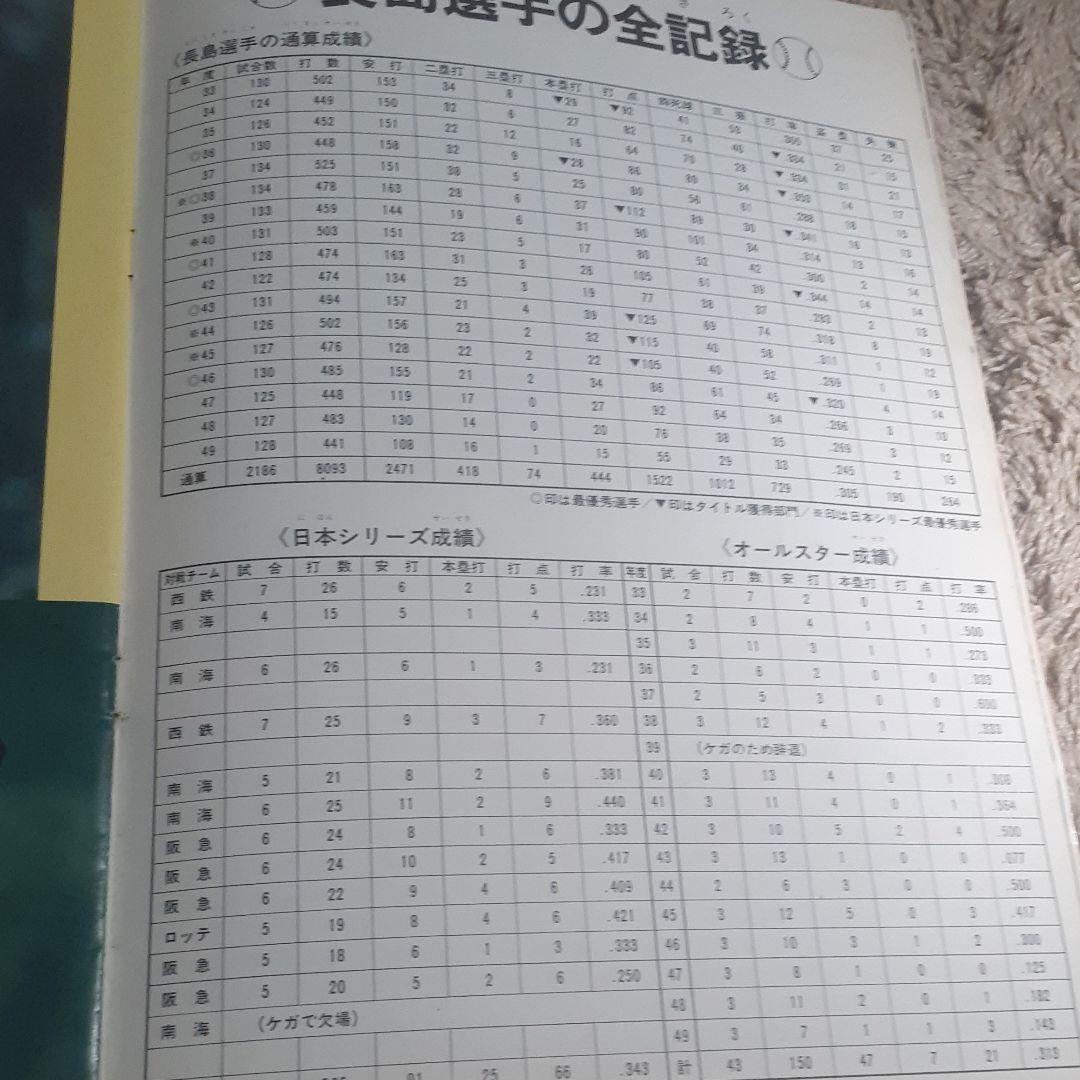 長島選手の全記録
《長島選手の通算成績》
年度 試合数 打数 安打 二塁打 三塁打 本塁打 打点 三振 打率 盗塁 失策
33 130 502 153 34 8 ▼29 ▼92 53 .305 37
34 124 449 150 32 6 27 82 74 40 ▼.334 21
35 126 452 151 22 12 16 64 70 28 ▼.334 31
◎36 130 448 158 32 9 ▼28 86 34 ▼.353 14
37 134 525 151 38 5 25 80 56 61 .288 18
※◎38 134 478 163 28 6 37 ▼112 30 ▼.341 16
39 133 459 144 19 6 31 90 101 34 .314 13
※40 131 503 151 23 5 17 80 52 42 .300 2
◎41 128 474 163 31 3 26 105 61 39 ▼.344 14
42 122 474 134 25 3 19 77 38 37 .283 2
◎43 131 494 157 21 4 39 ▼125 69 74 .318 8
※44 126 502 156 23 2 32 ▼115 58 .311 1
※45 127 476 128 22 2 22 ▼105 40 52 .269 1
◎46 130 485 155 21 2 34 86 61 45 ▼.320 4
47 125 448 119 17 0 27 92 64 34 .266 3
48 127 483 130 14 0 20 76 38 35 .269 3
49 128 441 108 16 1 15 55 29 33 .245 2
通算 2186 8093 2471 418 74 444 1522 1012 729 .305 190 264
◎印は最優秀選手／▼印はタイトル獲得部門／※印は日本シリーズ最優秀選手
《日本シリーズ成績》
対戦チーム 試合 打数 安打 本塁打 打点 打率
西鉄 7 26 6 2 5 .231
南海 4 15 5 1 4 .333
南海 6 26 6 1 3 .231
西鉄 7 25 9 3 7 .360
南海 5 21 8 2 6 .381
南海 6 25 11 2 9 .440
阪急 6 24 8 1 6 .333
阪急 6 24 10 2 5 .417
阪急 6 22 9 4 6 .409
ロッテ 5 19 8 4 6 .421
阪急 5 18 6 1 3 .333
阪急 5 20 5 2 6 .250
南海 (ケガで欠場)
91 25 66 .343
《オールスター成績》
年度 試合 打数 安打 本塁打 打点 打率
33 2 7 2 0 2 .286
34 2 8 4 1 1 .500
35 3 11 3 1 1 .273
36 2 6 2 0 0 .333
37 2 5 3 0 0 .600
38 3 12 4 1 2 .333
39 (ケガのため辞退)
40 3 13 4 0 1 .308
41 3 11 4 0 1 .364
42 3 10 5 2 4 .500
43 3 13 1 0 0 .077
44 2 6 3 0 0 .500
45 3 12 5 0 3 .417
46 3 10 3 1 2 .300
47 3 8 1 0 0 .125
48 3 11 2 0 1 .182
49 3 7 1 1 3 .143
計 43 150 47 7 21 .313